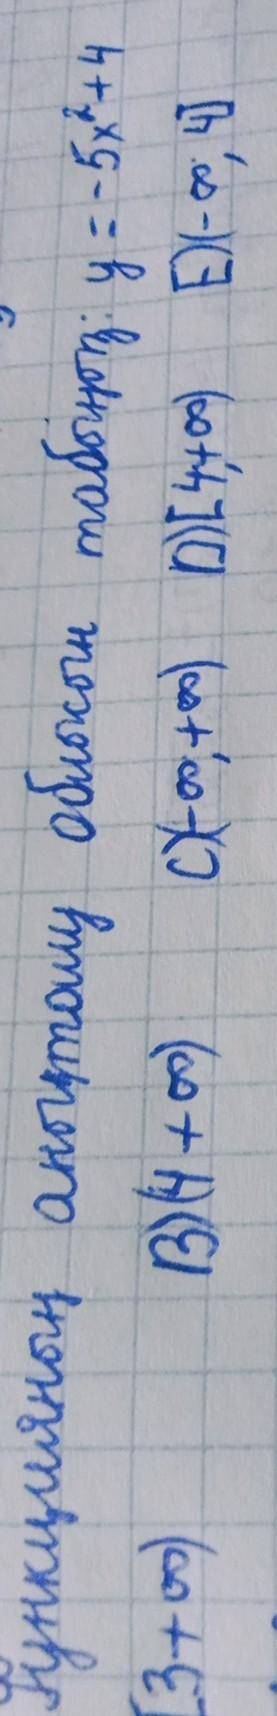 Функцияның анықталу облысын табыңыз: y = -5x² + 4
[3 + ∞) B) (4 + ∞) C) (-∞, +∞) D) [4, +∞) E) (-∞, 4]